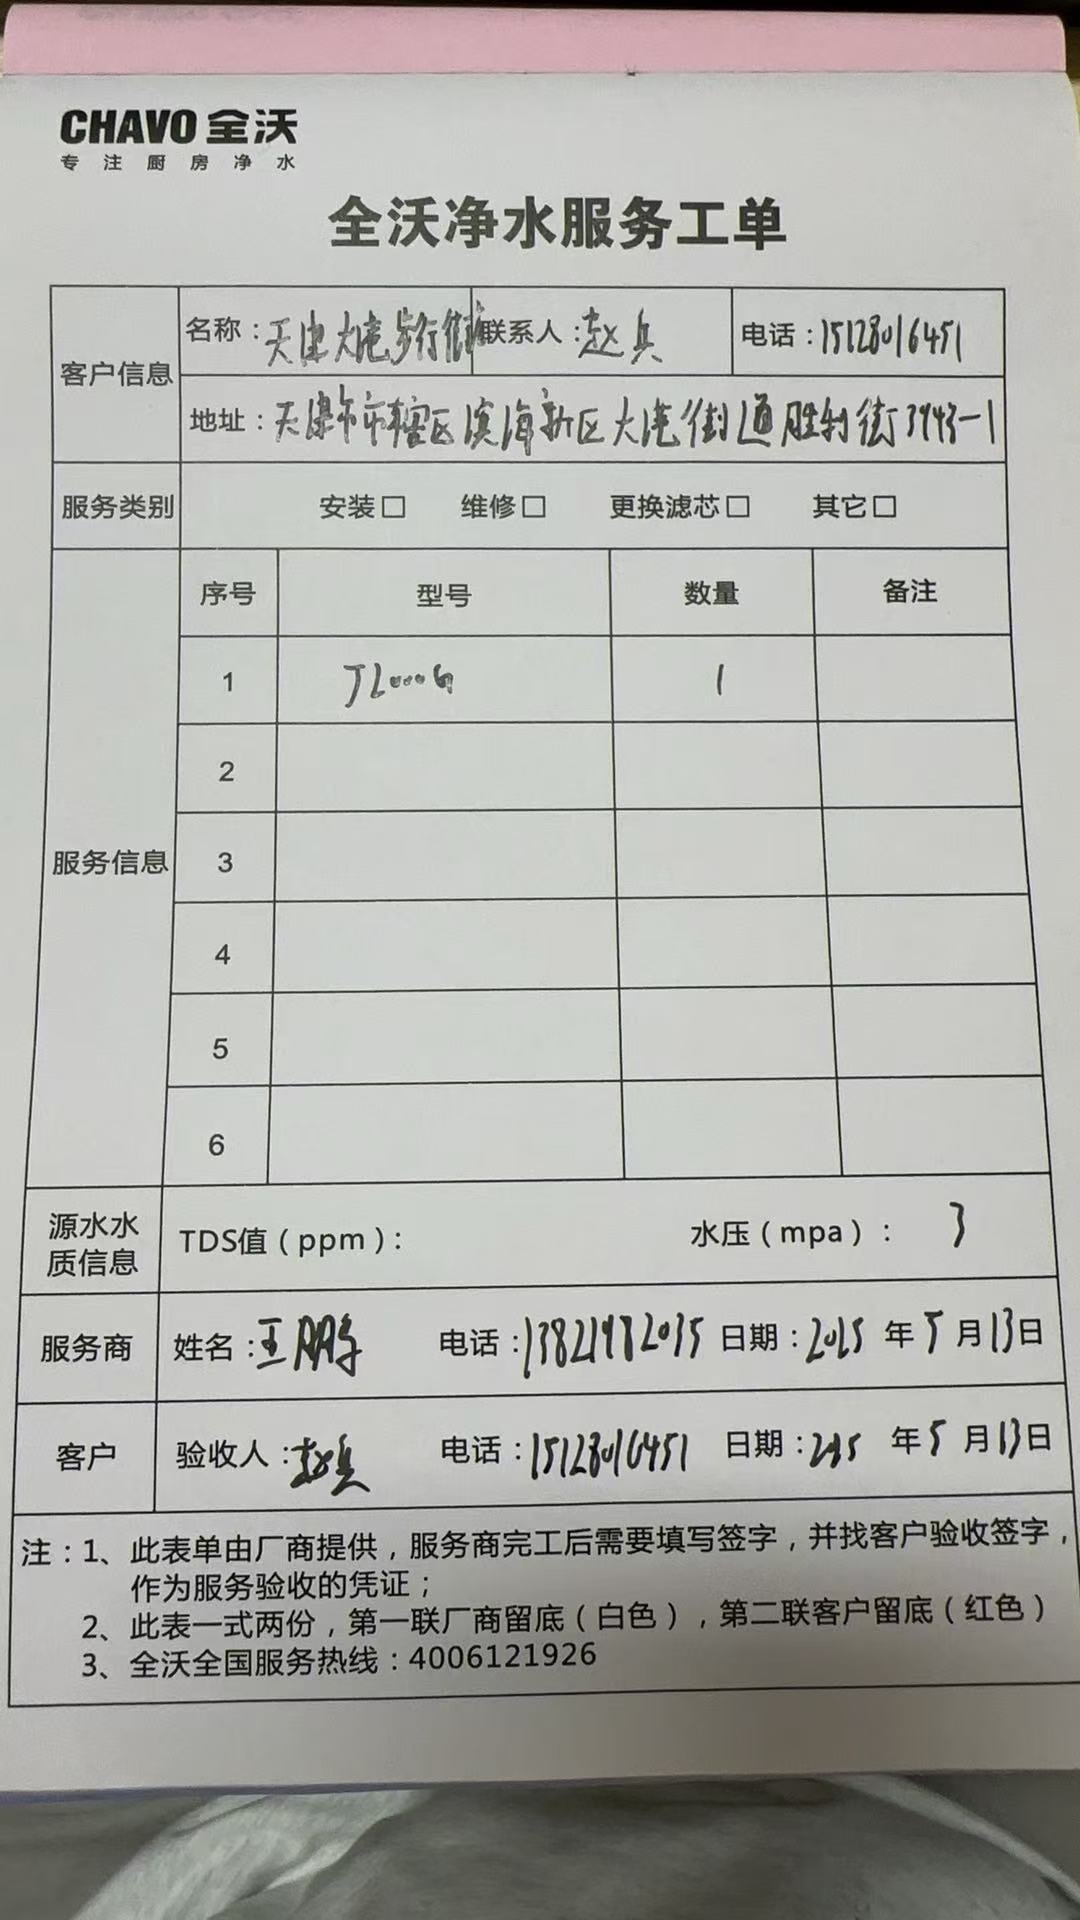 CHAVO 全沃
专注厨房净水
全沃净水服务工单
客户信息
名称：天津大港步行街 联系人：赵兵 电话：15128016451
地址：天津市市辖区滨海新区大港街道胜利街3943-1
服务类别 安装□ 维修□ 更换滤芯□ 其它□
服务信息
序号 型号 数量 备注
1 JL000G 1
2
3
4
5
6
源水水质信息 TDS值（ppm）： 水压（mpa）： 3
服务商 姓名：王鹏 电话：13821982035 日期：2025 年 5 月 13 日
客户 验收人：赵兵 电话：15128016451 日期：2025 年 5 月 13 日
注：1、此表单由厂商提供，服务商完工后需要填写签字，并找客户验收签字，
作为服务验收的凭证；
2、此表一式两份，第一联厂商留底（白色），第二联客户留底（红色）
3、全沃全国服务热线：4006121926